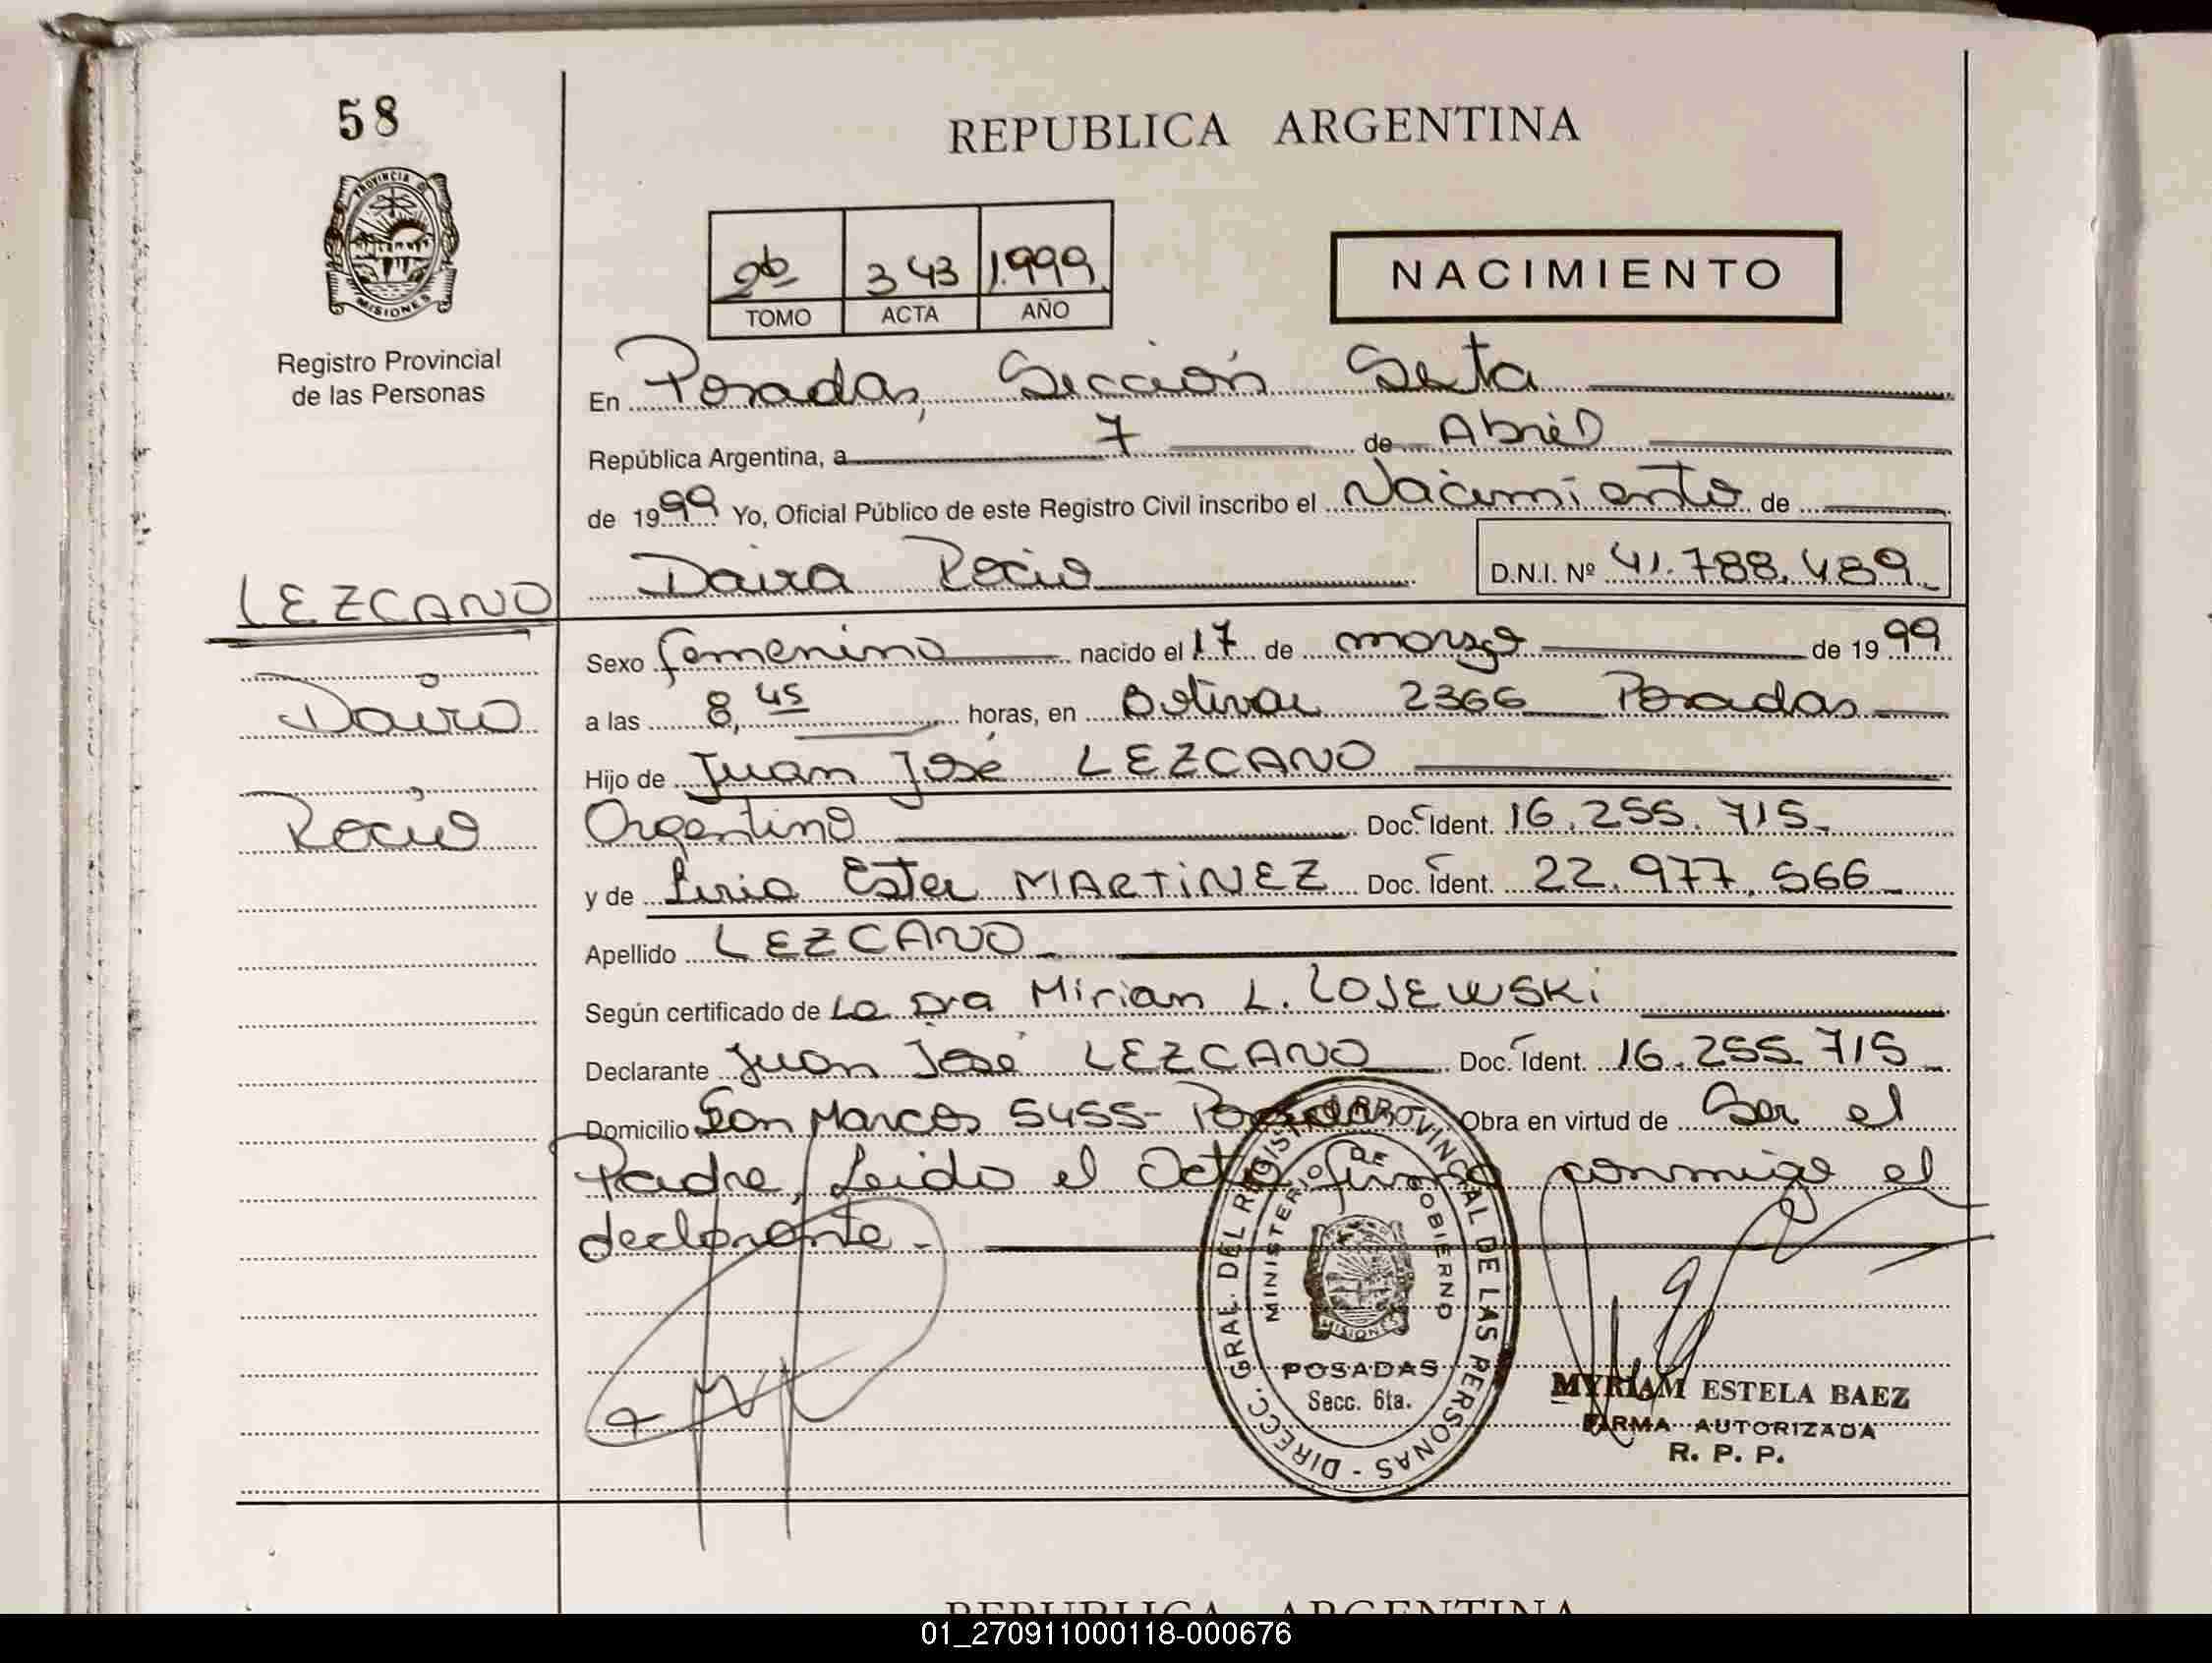 58
REPUBLICA ARGENTINA
PROVINCIA D
MISIONES
Registro Provincial
de las Personas
2b 343 1.999
TOMO ACTA AÑO
NACIMIENTO
En Posadas, Sección Sexta
República Argentina, a 7 de Abril
de 1999 Yo, Oficial Público de este Registro Civil inscribo el Nacimiento de
Daira Rocio D.N.I. Nº 41.788.489
LEZCANO
Daira
Rocio
Sexo femenino nacido el 17 de marzo de 1999
a las 8,45 horas, en Bolivar 2366 Posadas
Hijo de Juan José LEZCANO
Argentino Doc. Ident. 16.255.715
y de Liria Ester MARTINEZ Doc. Ident. 22.977.566
Apellido LEZCANO
Según certificado de La Dra Mirian L. LOJEWSKI
Declarante Juan José LEZCANO Doc. Ident. 16.255.715
Domicilio San Marcos 5455- Posadas Obra en virtud de Ser el
Padre, Leido el Acta firma conmigo el
declarante.-
DIRECC. GRAL. DEL REGISTRO PROVINCIAL DE LAS PERSONAS -
MINISTERIO DE GOBIERNO
MISIONES
POSADAS
Secc. 6ta.
MYRIAM ESTELA BAEZ
FIRMA AUTORIZADA
R. P. P.
REPUBLICA ARGENTINA
01_270911000118-000676